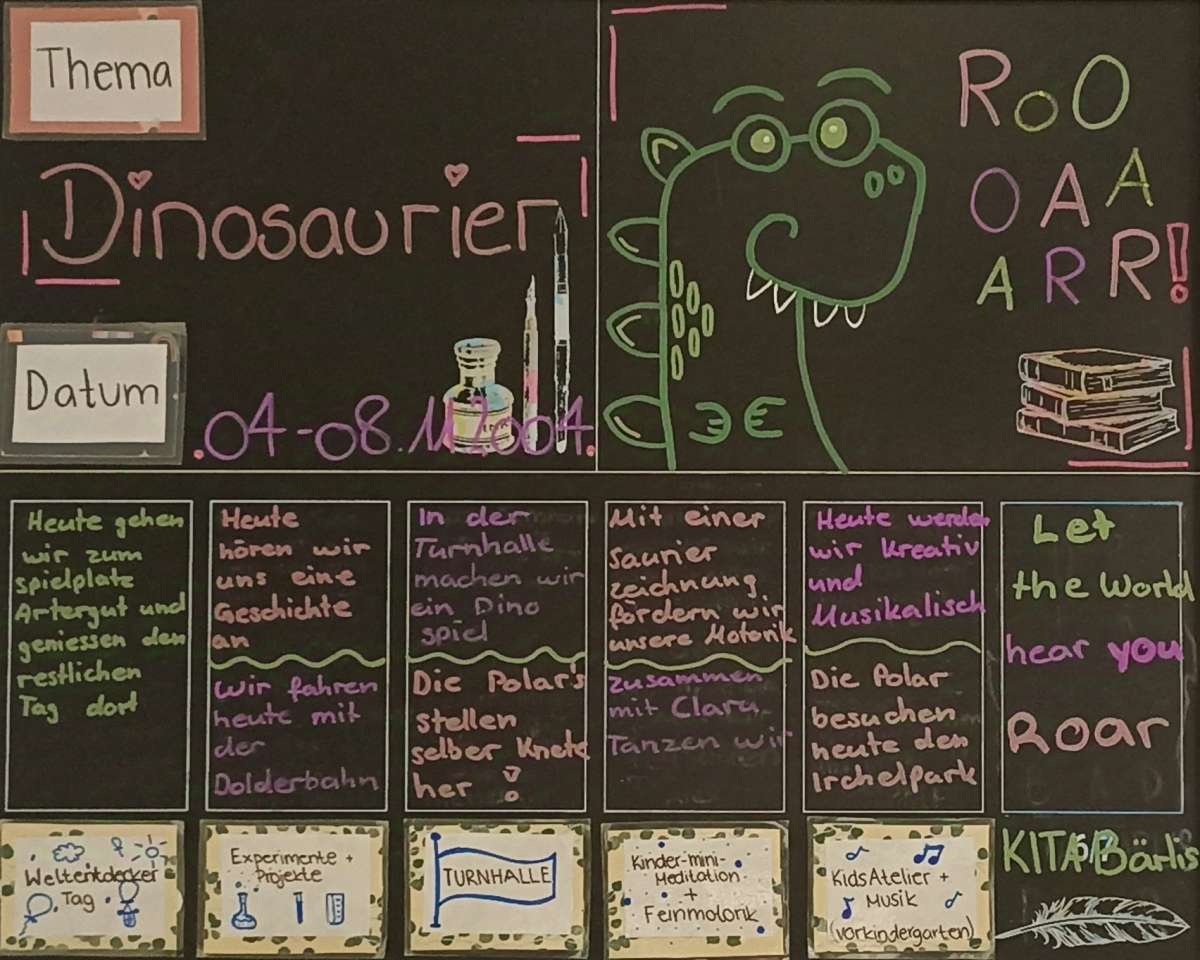 Thema
Dinosaurier
Datum
.04-08.11.2004.
RoO
OAA
ARR!
Heute gehen
wir zum
spielplatz
Artergut und
geniessen den
restlichen
Tag dort
Heute
hören wir
uns eine
Geschichte
an
Wir fahren
heute mit
der
Dolderbahn
In der
Turnhalle
machen wir
ein Dino
spiel
Die Polar's
stellen
selber Knete
her !
Mit einer
saurier
zeichnung
fördern wir
unsere Motorik
zusammen
mit Clara
Tanzen wir
Heute werden
wir Kreativ
und
Musikalisch
Die Polar
besuchen
heute den
Irchelpark
Let
the World
hear you
Roar
Weltentdecker
Tag
Experimente +
Projekte
TURNHALLE
Kinder-mini-
Meditation
+
Feinmotorik
KidsAtelier +
Musik
(vorkindergarten)
KITA Bärlis